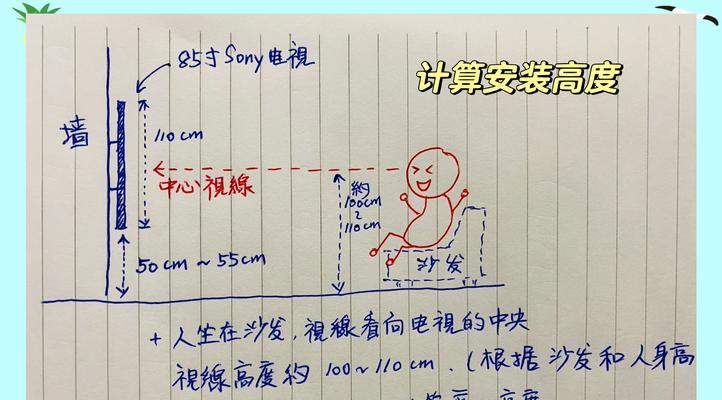 85寸Sony电視
计算安装高度
墙
110cm
中心視線
約
100cm
~
110cm
50cm~55cm
沙发
+ 人坐在沙发,視線看向电視的中央
視線高度約 100~110cm.(根据沙发和人身高